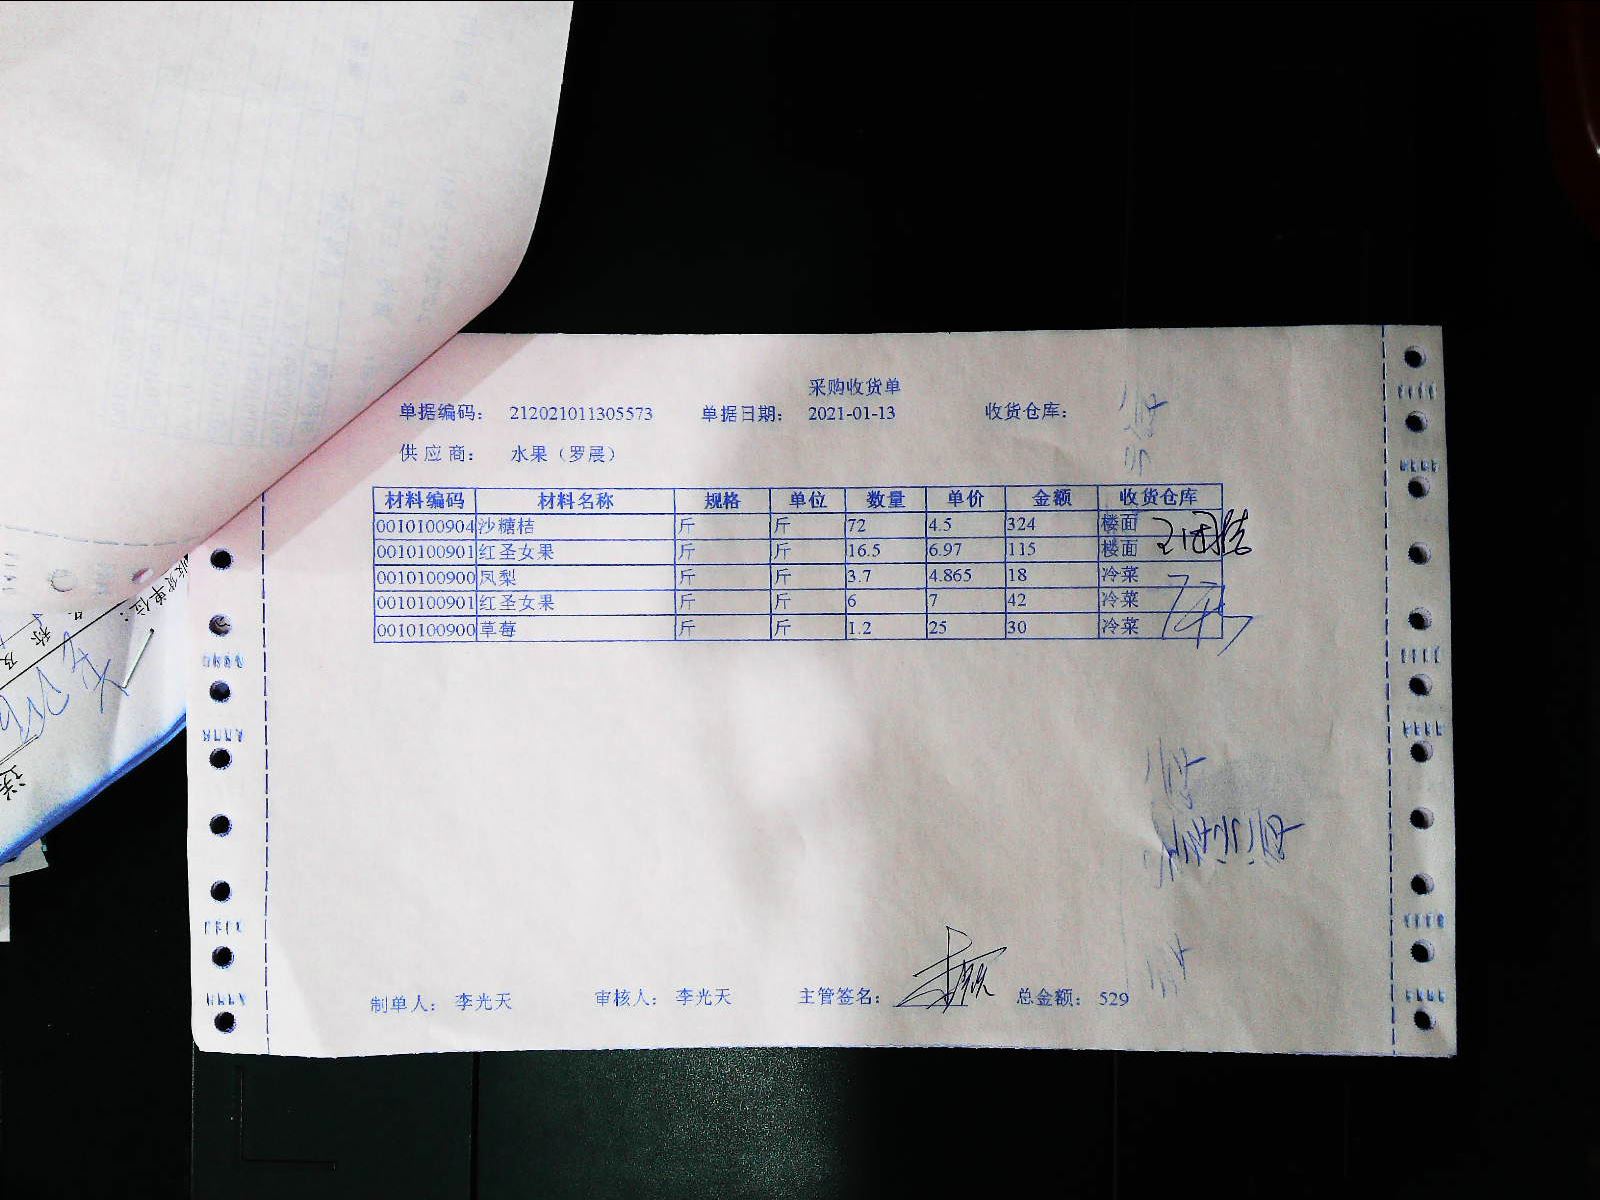 采购收货单
单据编码： 212021011305573 单据日期： 2021-01-13 收货仓库：
供应商： 水果（罗晨）
材料编码 材料名称 规格 单位 数量 单价 金额 收货仓库
0010100904 沙糖桔 斤 斤 72 4.5 324 楼面
0010100901 红圣女果 斤 斤 16.5 6.97 115 楼面
0010100900 凤梨 斤 斤 3.7 4.865 18 冷菜
0010100901 红圣女果 斤 斤 6 7 42 冷菜
0010100900 草莓 斤 斤 1.2 25 30 冷菜
制单人： 李光天 审核人： 李光天 主管签名： 总金额： 529
收货单位：